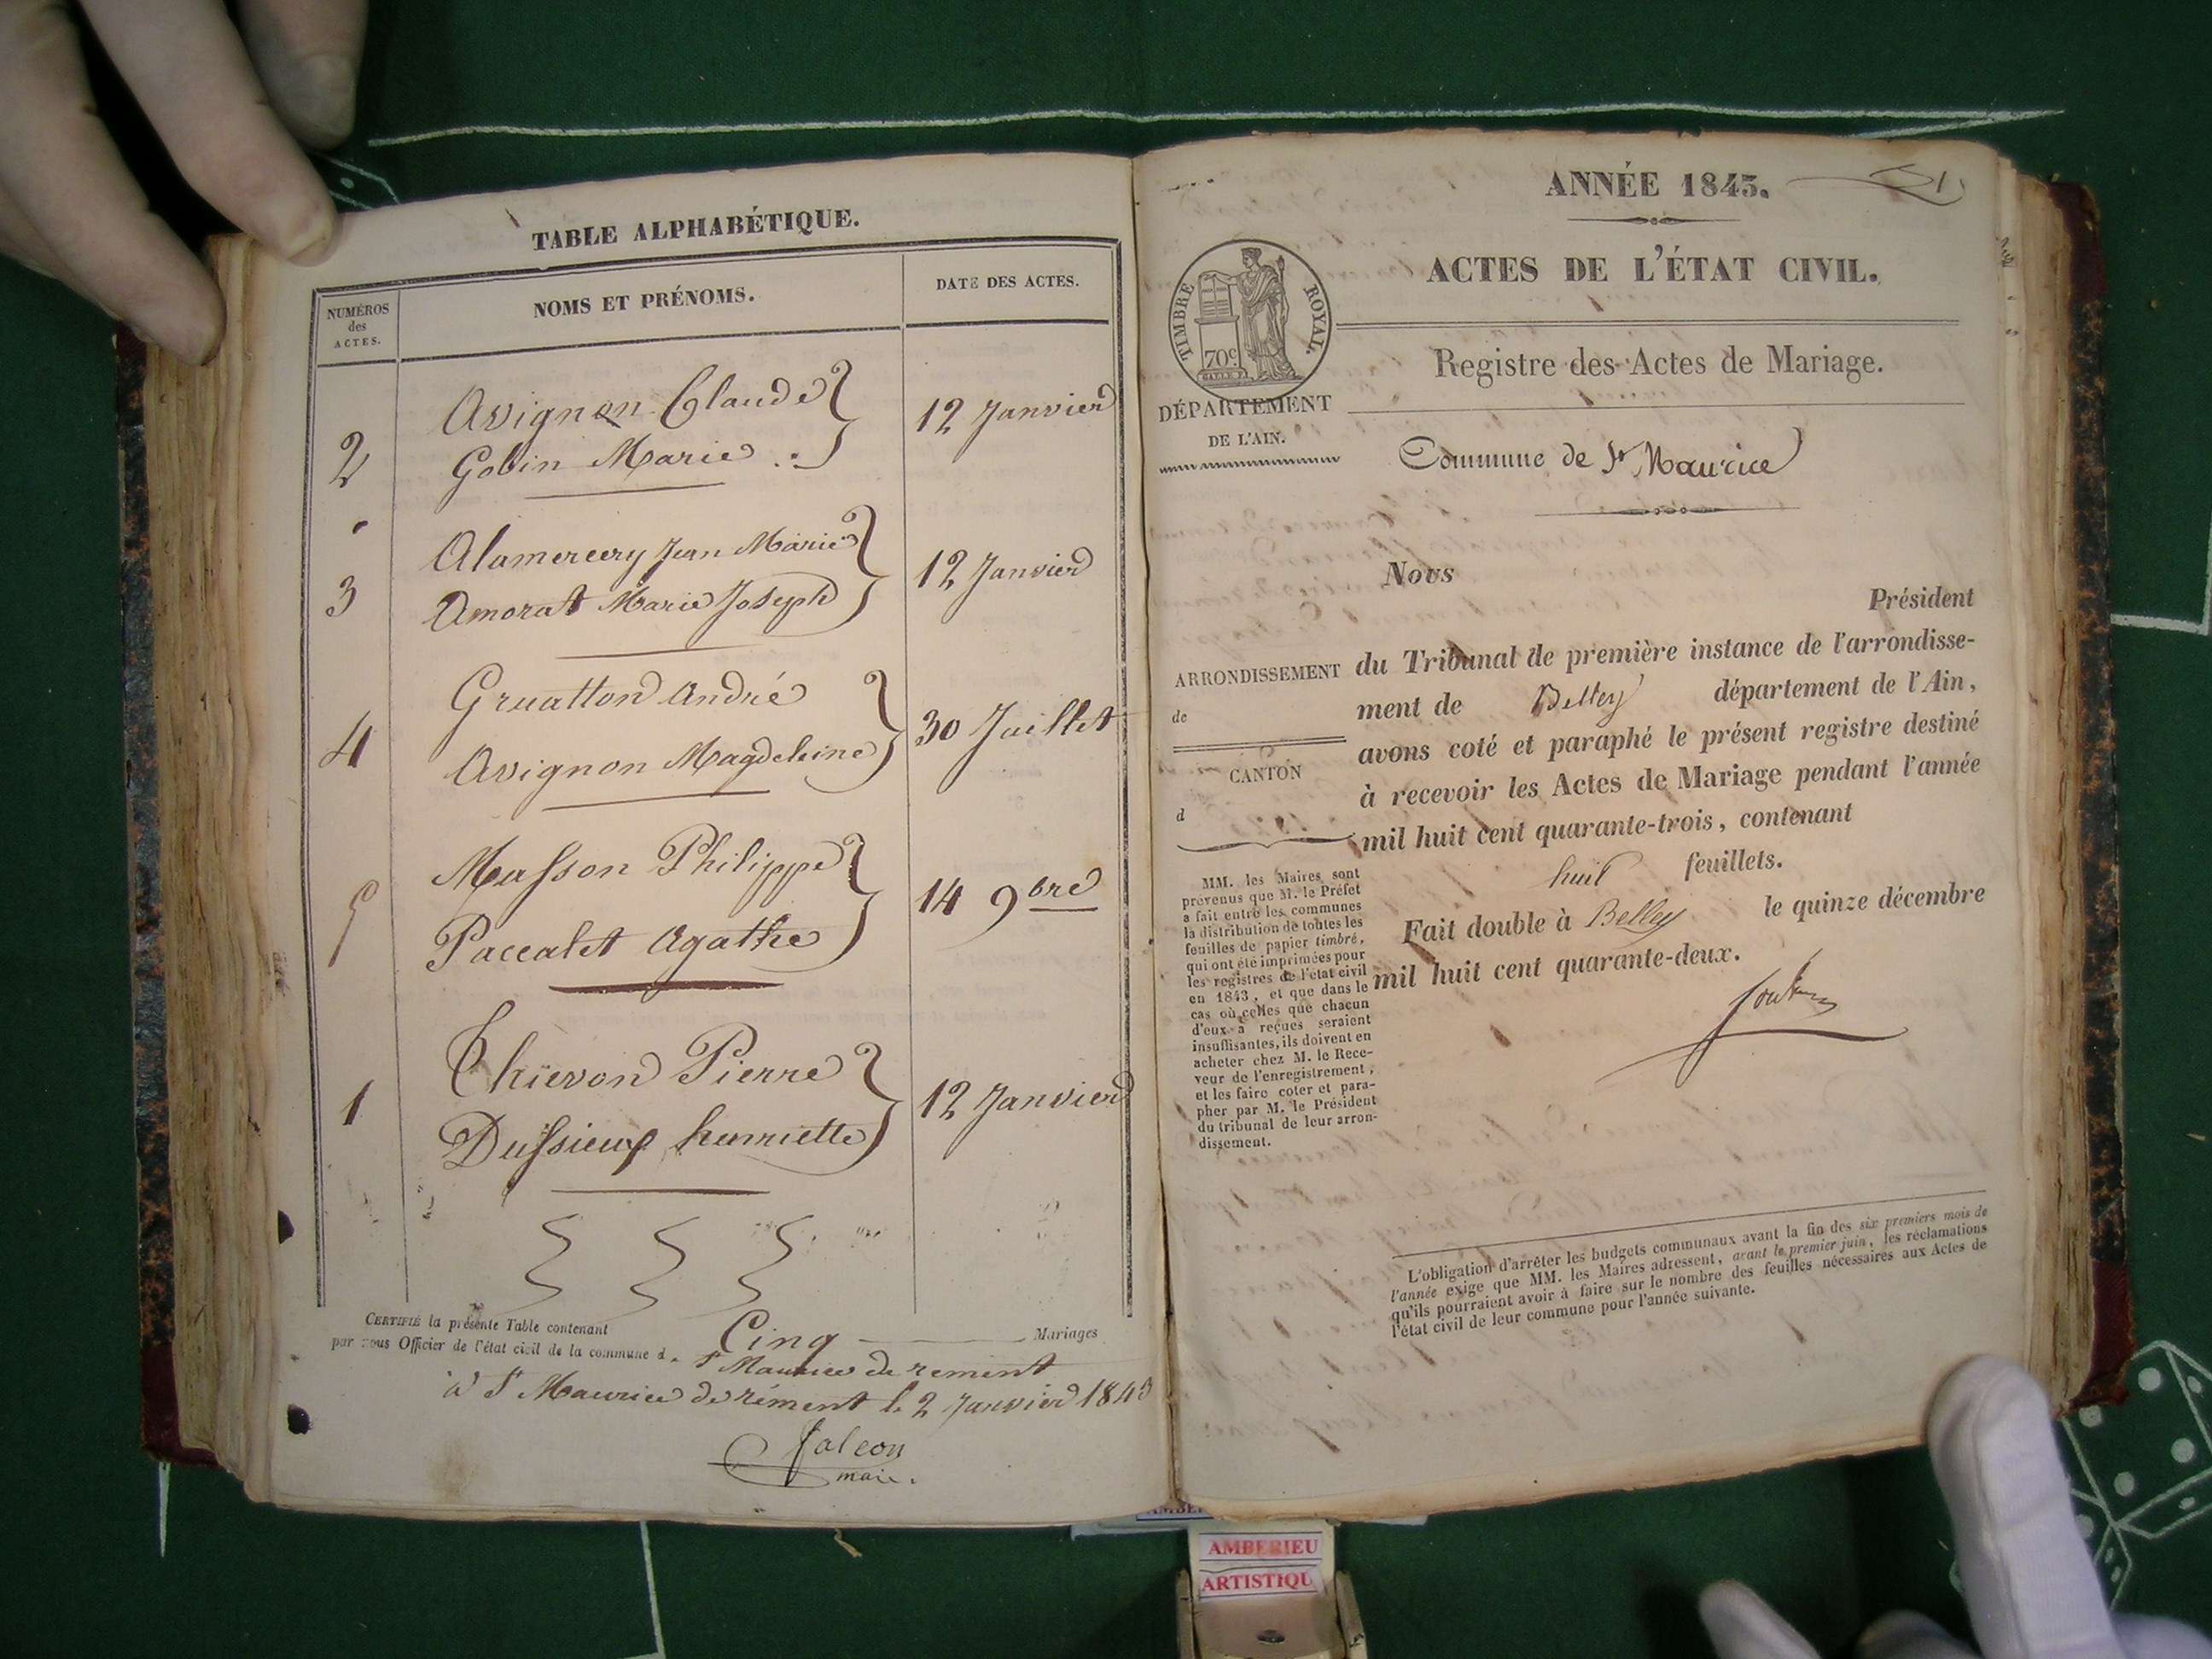 TABLE ALPHABÉTIQUE.
NUMÉROS
des
ACTES.
NOMS ET PRÉNOMS.
DATE DES ACTES.
2
Avignon Claude
Gobin Marie
12 Janvier
3
Alamercery Jean Marie
Amorat Marie Joseph
12 Janvier
4
Gruatton André
Avignon Magdeleine
30 Juillet
5
Masson Philippe
Paccalet Agathe
14 9bre
1
Thievon Pierre
Dussieux henriette
12 Janvier
CERTIFIÉ la présente Table contenant Cinq Mariages
par nous Officier de l'état civil de la commune d. St Maurice de rement
à St Maurice de rément le 2 Janvier 1843
falcon
maire.
ANNÉE 1843.
1
ACTES DE L'ÉTAT CIVIL.
TIMBRE ROYAL.
70c
Registre des Actes de Mariage.
DÉPARTEMENT
DE L'AIN.
Commune de St Maurice
Nous
Président
ARRONDISSEMENT
de
CANTON
d
du Tribunal de première instance de l'arrondisse-
ment de Belley département de l'Ain,
avons coté et paraphé le présent registre destiné
à recevoir les Actes de Mariage pendant l'année
mil huit cent quarante-trois, contenant
huit feuillets.
Fait double à Belley le quinze décembre
mil huit cent quarante-deux.
MM. les Maires sont
prévenus que M. le Préfet
a fait entre les communes
la distribution de toutes les
feuilles de papier timbré,
qui ont été imprimées pour
les registres de l'état civil
en 1843, et que dans le
cas où celles que chacun
d'eux a reçues seraient
insuffisantes, ils doivent en
acheter chez M. le Rece-
veur de l'enregistrement,
et les faire coter et para-
pher par M. le Président
du tribunal de leur arron-
dissement.
L'obligation d'arrêter les budgets communaux avant la fin des six premiers mois de
l'année exige que MM. les Maires adressent, avant le premier juin, les réclamations
qu'ils pourraient avoir à faire sur le nombre des feuilles nécessaires aux Actes de
l'état civil de leur commune pour l'année suivante.
AMBERIEU
ARTISTIQU